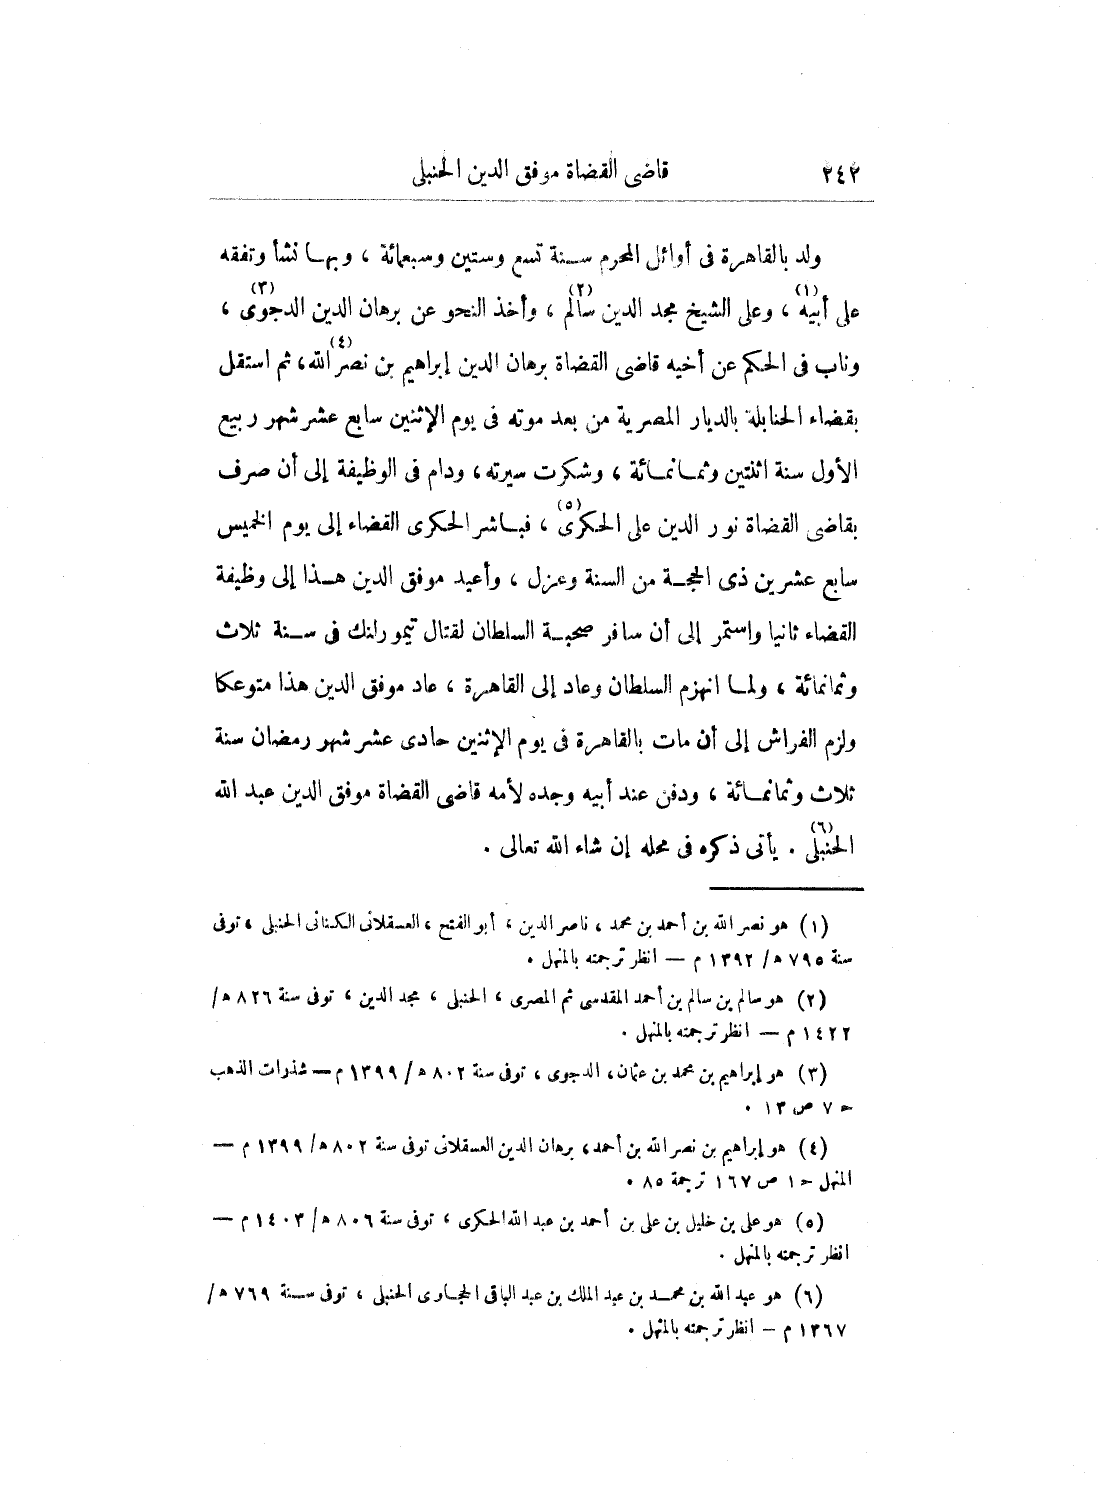 ٢٤٢ قاضى القضاة موفق الدين الحنبلى
ولد بالقاهرة فى أوائل المحرم سنة تسع وستين وسبعمائة ، وبها نشأ وتفقه
على أبيه(١) ، وعلى الشيخ مجد الدين سالم(٢) ، وأخذ النحو عن برهان الدين الدجوى(٣) ،
وناب فى الحكم عن أخيه قاضى القضاة برهان الدين إبراهيم بن نصر الله(٤)، ثم استقل
بقضاء الحنابلة بالديار المصرية من بعد موته فى يوم الإثنين سابع عشر شهر ربيع
الأول سنة اثنتين وثمانمائة ، وشكرت سيرته ، ودام فى الوظيفة إلى أن صرف
بقاضى القضاة نور الدين على الحكرى(٥) ، فباشر الحكرى القضاء إلى يوم الخميس
سابع عشرين ذى الحجة من السنة وعزل ، وأعيد موفق الدين هذا إلى وظيفة
القضاء ثانيا واستمر إلى أن سافر صحبة السلطان لقتال تيمورلنك فى سنة ثلاث
وثمانمائة ، ولما انهزم السلطان وعاد إلى القاهرة ، عاد موفق الدين هذا متوعكا
ولزم الفراش إلى أن مات بالقاهرة فى يوم الإثنين حادى عشر شهر رمضان سنة
ثلاث وثمانمائة ، ودفن عند أبيه وجده لأمه قاضى القضاة موفق الدين عبد الله
الحنبلى(٦) . يأتى ذكره فى محله إن شاء الله تعالى .
(١) هو نصر الله بن أحمد بن محمد ، ناصر الدين ، أبو الفتح ، العسقلانى الكنانى الحنبلى ، توفى
سنة ٧٩٥ ه/ ١٣٩٢ م — انظر ترجمته بالمنهل .
(٢) هو سالم بن سالم بن أحمد المقدسى ثم المصرى ، الحنبلى ، مجد الدين ، توفى سنة ٨٢٦ ه/
١٤٢٢ م — انظر ترجمته بالمنهل .
(٣) هو إبراهيم بن محمد بن عثمان ، الدجوى ، توفى سنة ٨٠٢ ه/ ١٣٩٩ م — شذرات الذهب
ح ٧ ص ١٣ .
(٤) هو إبراهيم بن نصر الله بن أحمد ، برهان الدين العسقلانى توفى سنة ٨٠٢ ه/ ١٣٩٩ م —
المنهل ح ١ ص ١٦٧ ترجمة ٨٥ .
(٥) هو على بن خليل بن على بن أحمد بن عبد الله الحكرى ، توفى سنة ٨٠٦ ه/ ١٤٠٣ م —
انظر ترجمته بالمنهل .
(٦) هو عبد الله بن محمد بن عبد الملك بن عبد الباقى الحجاوى الحنبلى ، توفى سنة ٧٦٩ ه/
١٣٦٧ م — انظر ترجمته بالمنهل .